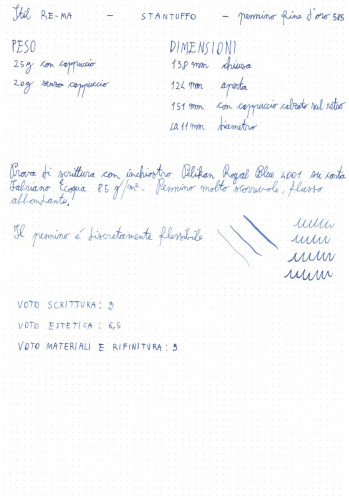 Stil RE-MA - STANTUFFO - pennino fine d'oro 585
PESO DIMENSIONI
25g con cappuccio 138 mm chiusa
20g senza cappuccio 124 mm aperta
151 mm con cappuccio calzato sul retro
ca 11 mm diametro
Prova di scrittura con inchiostro Pelikan Royal Blue 4001 su carta
Fabriano Ecoqua 85 g/m². Pennino molto scorrevole, flusso
abbondante.
Il pennino é discretamente flessibile
VOTO SCRITTURA: 9
VOTO ESTETICA: 6,5
VOTO MATERIALI E RIFINITURA: 9